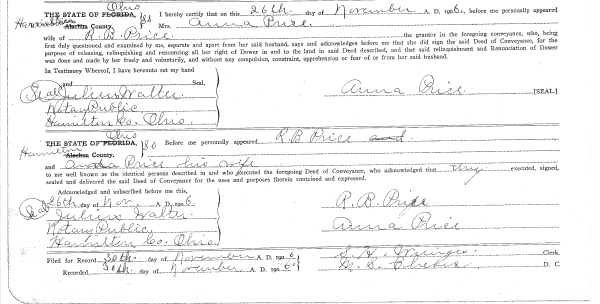 Ohio
THE STATE OF FLORIDA, } ss I hereby certify that on this 26th day of November A. D. 1906, before me personally appeared
Hamilton Alachua County. Mrs. Anna Price
wife of R. B. Price the grantor in the foregoing conveyance, who, being
first duly questioned and examined by me, separate and apart from her said husband, says and acknowledges before me that she did sign the said Deed of Conveyance, for the
purpose of releasing, relinquishing and renouncing all her right of Dower in and to the land in said Deed described, and that said Relinquishment and Renunciation of Dower
was done and made by her freely and voluntarily, and without any compulsion, constraint, apprehension or fear of or from her said husband.
In Testimony Whereof, I have hereunto set my hand
and Seal,
Seal Julius Walter Anna Price [SEAL]
Notary Public
Hamilton Co. Ohio.
Ohio
THE STATE OF FLORIDA, } ss Before me personally appeared R B Price and
Hamilton Alachua County.
and Anna Price his wife
to me well known as the identical persons described in and who executed the foregoing Deed of Conveyance, who acknowledged that they executed, signed,
sealed and delivered the said Deed of Conveyance for the uses and purposes therein contained and expressed.
Acknowledged and subscribed before me this,
Seal 26th day of Nov A. D. 1906 R. B. Price
Julius Walter
Notary Public Anna Price
Hamilton Co. Ohio.
Filed for Record 30th day of November A. D. 1906 Clerk.
Recorded 30th day of November A. D. 1906 D. C.